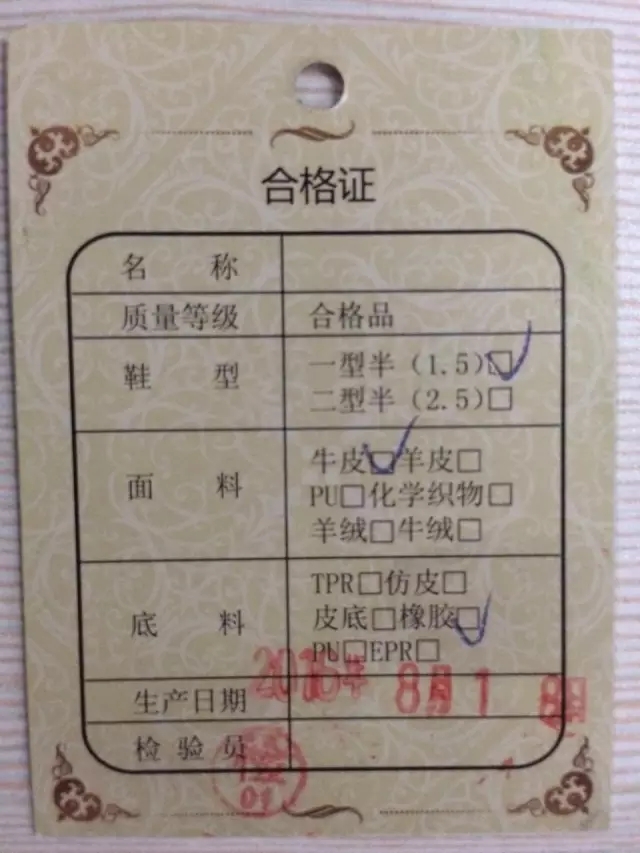 合格证
名 称
质量等级 合格品
鞋 型 一型半（1.5）☑
二型半（2.5）□
面 料 牛皮☑羊皮□
PU□化学织物□
羊绒□牛绒□
底 料 TPR□仿皮□
皮底□橡胶☑
PU□EPR□
生产日期 8月1
检验员 01